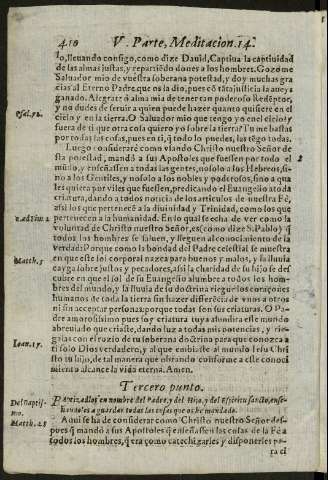 410 V. Parte, Meditacion. 14.
lo, lleuando consigo, como dize Dauid, Captiua la captiuidad
de las almas justas, y repartiẽdo dones a los hombres. Gozome
Saluador mio de vuestra soberana potestad, y doy muchas gra
cias al Eterno Padre que os la dio, pues cõ tãta justicia la aueys
ganado. Alegrate ò alma mia de tener tan poderoso Redẽptor,
y no dudes de seruir a quien puede hazer quanto quisiere en el
Psal. 72. cielo y en la tierra. O Saluador mio que tengo yo en el cielo: y
fuera de ti que otra cosa quiero yo sobre la tierra? Tu me bastas
por todas las cosas, pues en ti, q̃ todo lo puedes, las tẽgo todas.
Luego considerarè como viendo Christo nuestro Señor de
sta potestad, mandò a sus Apostoles que fuessen por todo el 2
mũdo, y enseñassen a todas las gentes, no solo a los Hebreos, si-
no a los Gentiles, y no solo a los nobles y poderosos, sino a qua
les quiera por viles que fuessen, predicando el Euangelio a toda
criatura, dando a todos noticia de los articulos de nuestra Fè,
assi los que pertenecẽ a la diuinidad y Trinidad, como los que
1. ad Tim. 2 pertenecen a la humanidad. En lo qual se echa de ver como la
voluntad de Christo nuestro Señor, es (como dize S. Pablo) q̃
todos los hombres se saluen, y lleguen al conocimiento de la
verdad: Porque como la bondad del Padre celestial se muestra
Matth. 5 en que este sol corporal nazca para buenos y malos, y su lluuia
cayga sobre justos y pecadores, assi la charidad de su hijo se des
cubre en que el sol de su Euangelio alumbre a todos los hom-
bres del mundo, y la lluuia de su doctrina riegue los coraçones
humanos de toda la tierra sin hazer differẽcia de vnos a otros
ni sin acceptar persona: porque todas son sus criaturas. O Pa-
dre amorosissimo pues soy criatura tuya a fundira este mundo
abreuiado que criaste, dando luz a todas mis potencias, y rie-
galas con el rozio de tu soberana doctrina para que conozca a
Ioan. 17. ti solo Dios verdadero, y al que embiaste al mundo Iesu Chri
sto tu hijo, de tal manera que obrando conforme a este conoci
miento alcance la vida eterna. Amen.
Tercero punto.
Del Baptis-
mo. Baptizaldos en nombre del Padre, y del Hijo, y del Espiritu sancto, ense-
ñandoles a guardar todas las cosas que os he mandado.
Matth. 28 Aqui se ha de considerar como Christo nuestro Señor des-
pues q̃ mandò a sus Apostoles q̃ enseñassen las cosas de la Fè a
todos los hombres, q̃ era como catechizarles y disponerles pa-
ra el